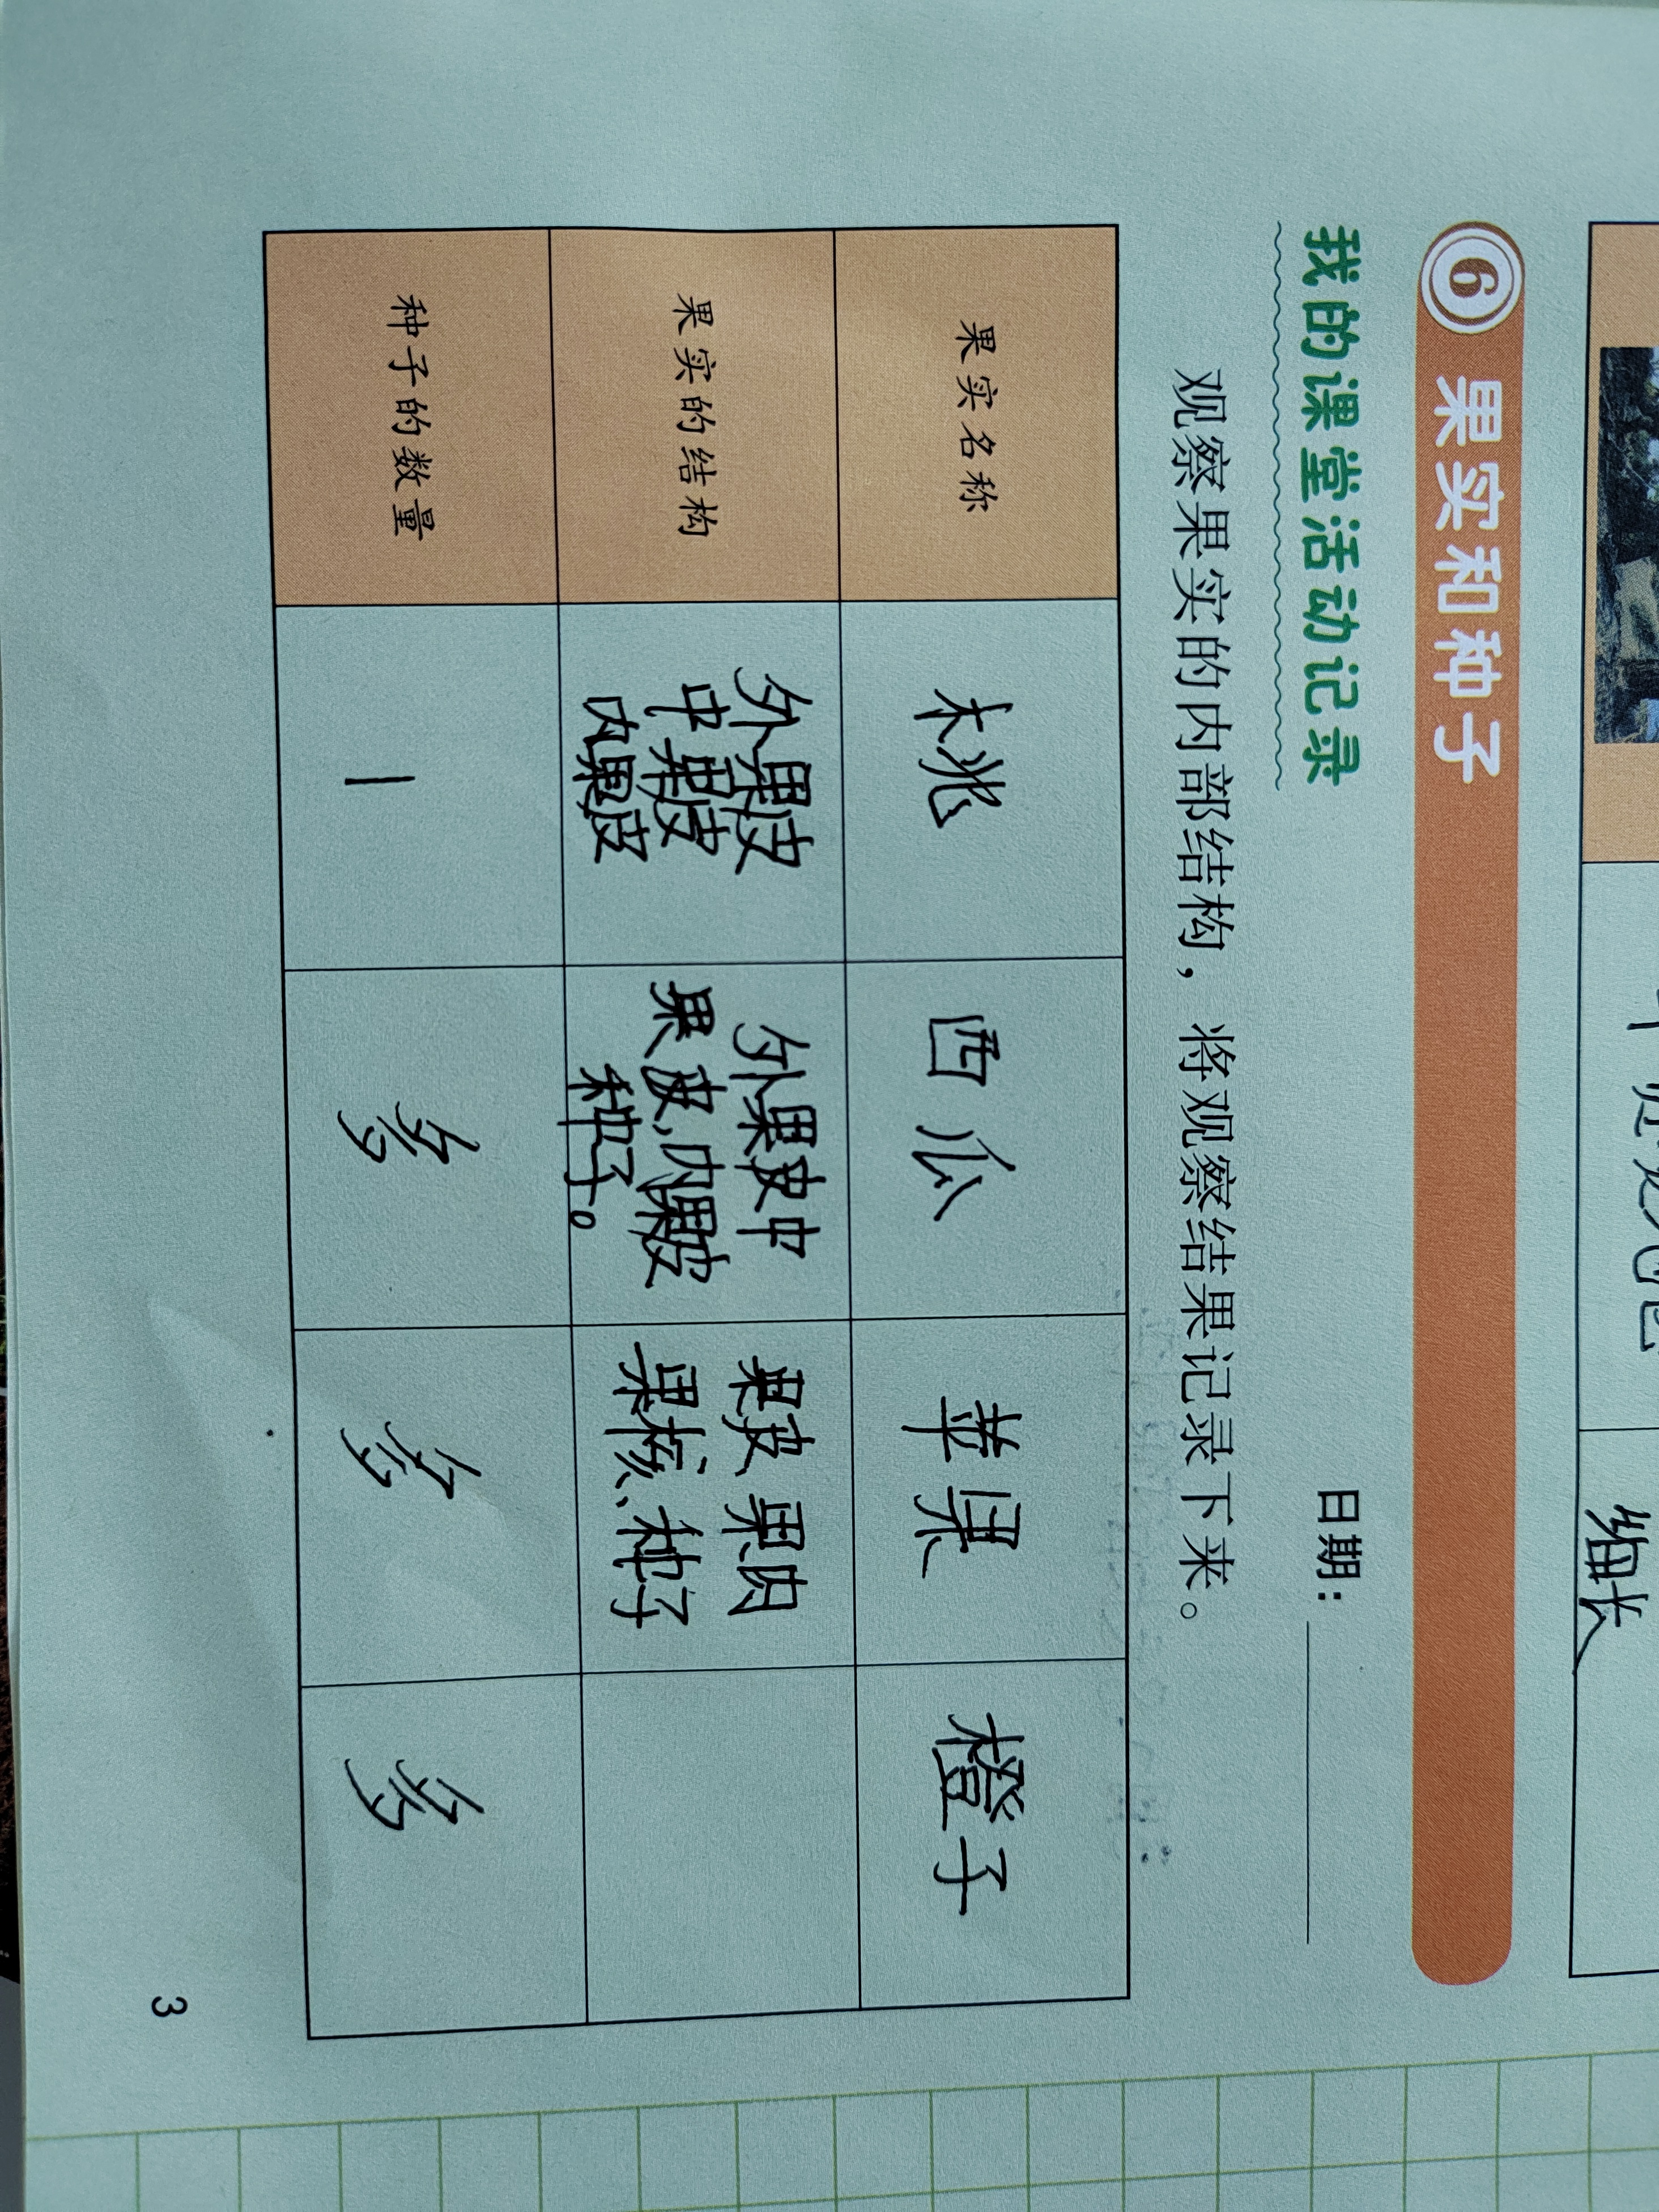 细长
6 果实和种子
我的课堂活动记录 日期：
观察果实的内部结构，将观察结果记录下来。
果实名称 桃 西瓜 苹果 橙子
果实的结构
外果皮
中果皮
内果皮
外果皮中
果皮、内果皮
种子。
果皮 果肉
果核、种子
种子的数量 1 多 多 多
3